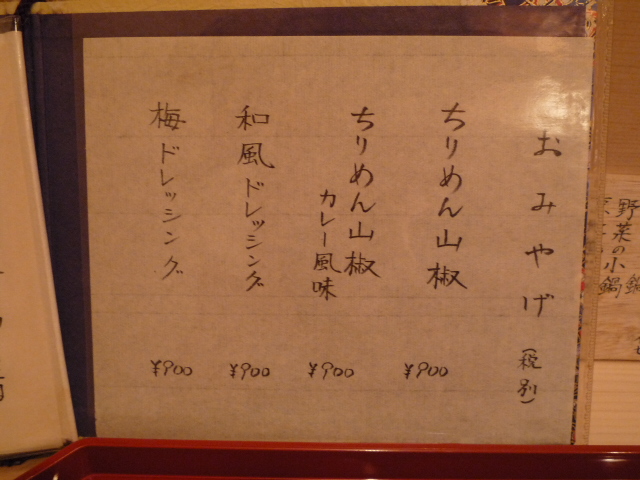 おみやげ(税別)
ちりめん山椒 ¥900
ちりめん山椒
カレー風味 ¥900
和風ドレッシング ¥900
梅ドレッシング ¥900
野菜の小鍋